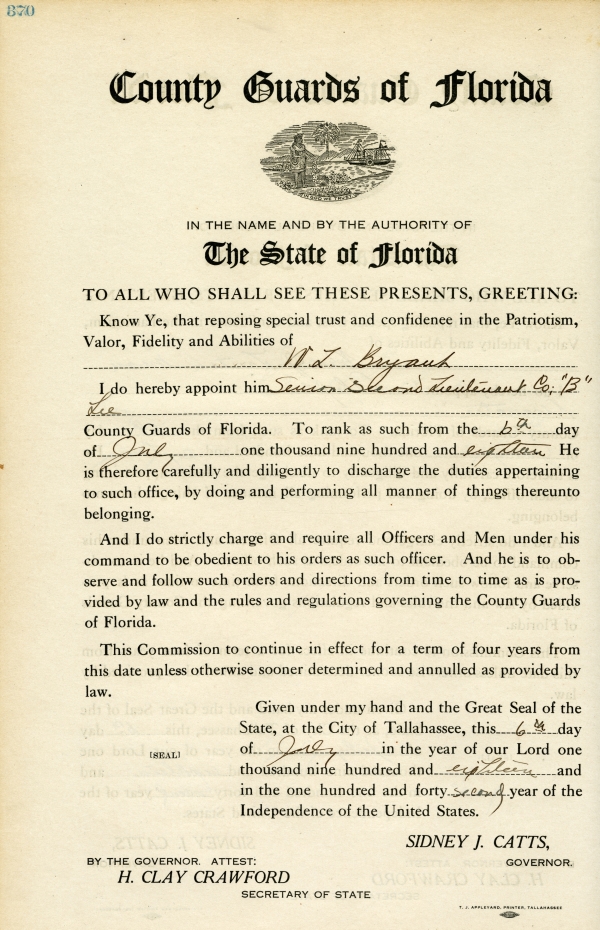 370
County Guards of Florida
IN GOD WE TRUST
IN THE NAME AND BY THE AUTHORITY OF
The State of Florida
TO ALL WHO SHALL SEE THESE PRESENTS, GREETING:
Know Ye, that reposing special trust and confidence in the Patriotism,
Valor, Fidelity and Abilities of
W L Bryant
I do hereby appoint him Senior Second Lieutenant Co, "B"
Lee
County Guards of Florida. To rank as such from the 6th day
of July one thousand nine hundred and eighteen He
is therefore carefully and diligently to discharge the duties appertaining
to such office, by doing and performing all manner of things thereunto
belonging.
And I do strictly charge and require all Officers and Men under his
command to be obedient to his orders as such officer. And he is to ob-
serve and follow such orders and directions from time to time as is pro-
vided by law and the rules and regulations governing the County Guards
of Florida.
This Commission to continue in effect for a term of four years from
this date unless otherwise sooner determined and annulled as provided by
law.
Given under my hand and the Great Seal of the
State, at the City of Tallahassee, this 6th day
[SEAL] of July in the year of our Lord one
thousand nine hundred and eighteen and
in the one hundred and forty second year of the
Independence of the United States.
SIDNEY J. CATTS,
GOVERNOR.
BY THE GOVERNOR. ATTEST:
H. CLAY CRAWFORD
SECRETARY OF STATE
T. J. APPLEYARD, PRINTER, TALLAHASSEE